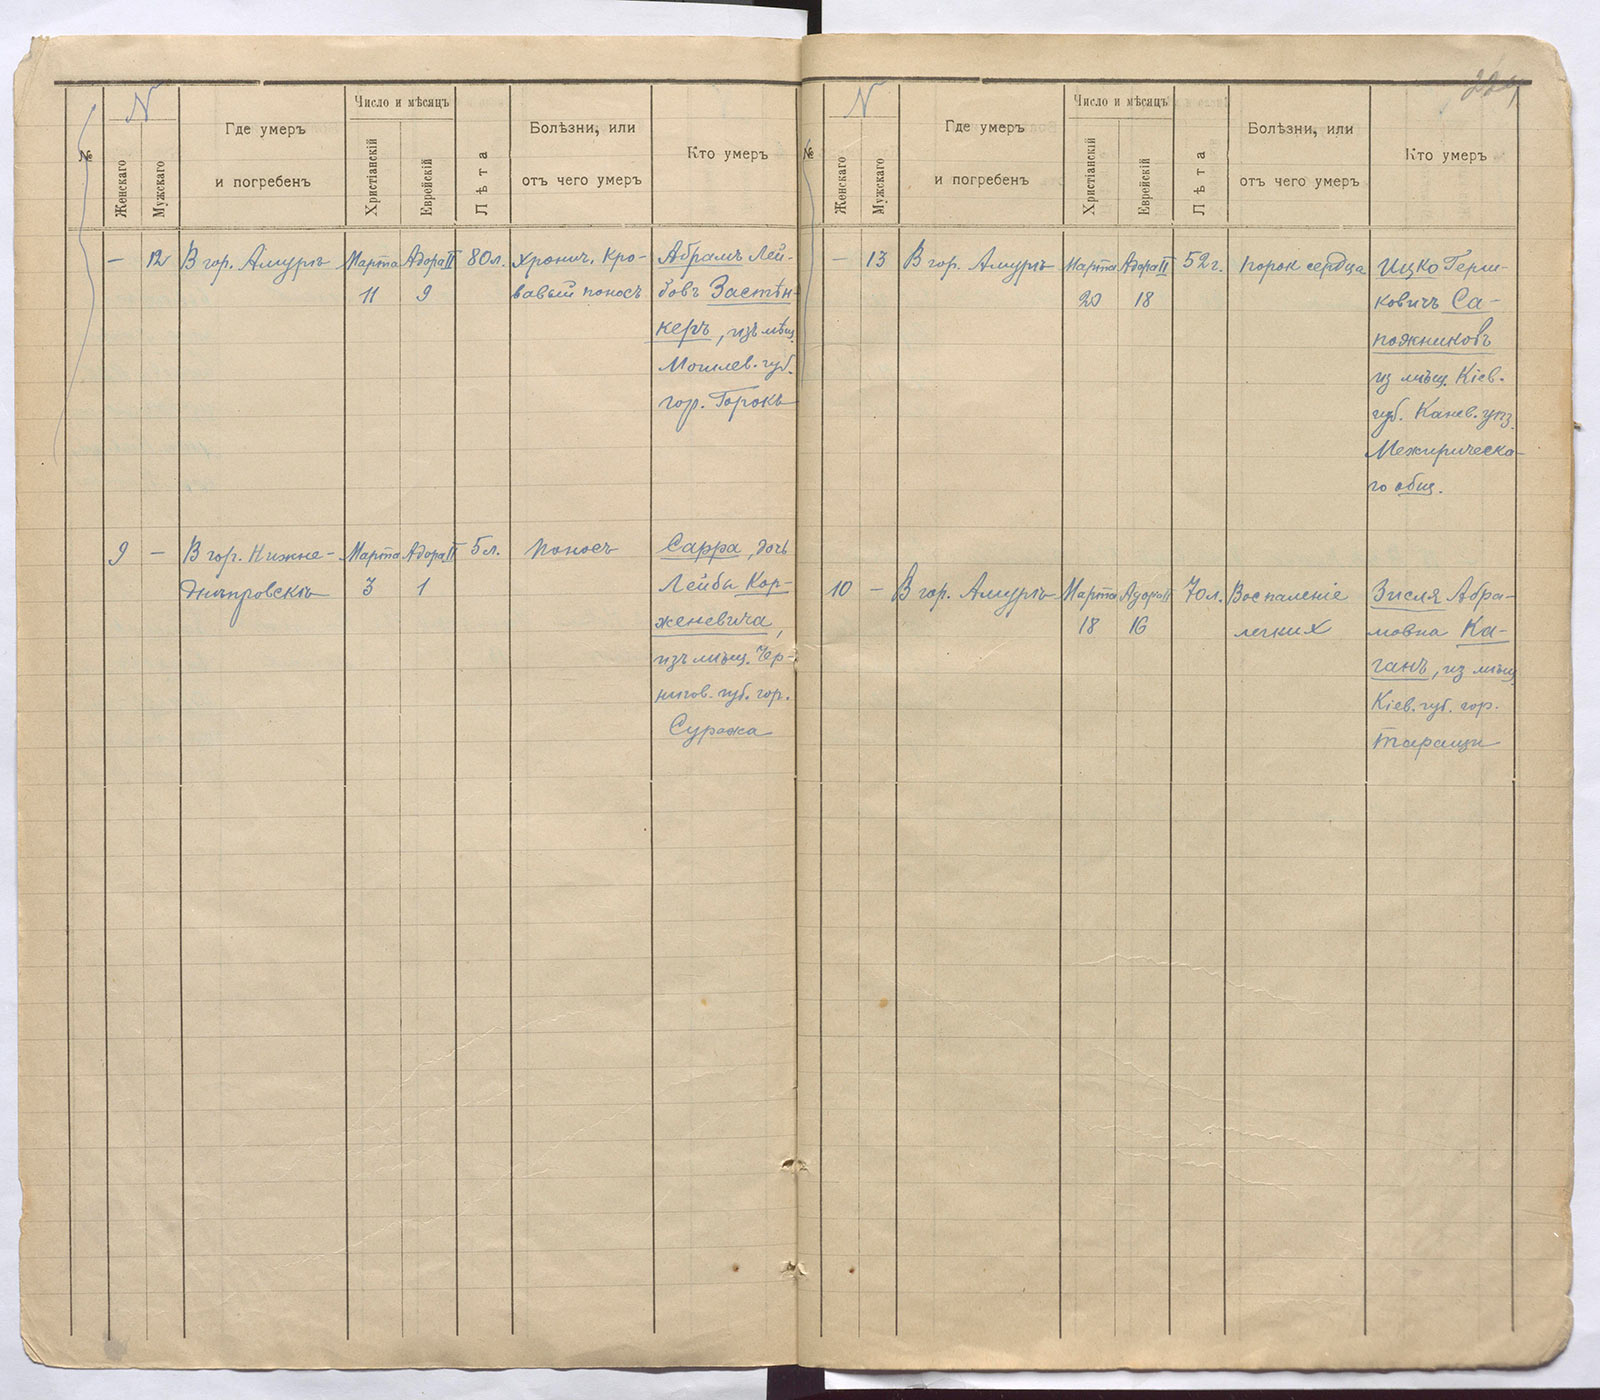 N
№
Женскаго
Мужскаго
Где умеръ
и погребенъ
Число и мѣсяцъ
Христіанскій
Еврейскій
Лѣта
Болѣзни, или
отъ чего умеръ
Кто умеръ
— 12 В гор. Амурѣ Марта Адора II 80 л. Хронич. Кро- Абрамъ Лей-
11 9 вавый поносъ бовъ Застѣн-
керъ, изъ мѣщ.
Могилев. губ.
гор. Горокъ
9 — В гор. Нижне- Марта Адора II 5 л. Поносъ Сарра, дочь
Днѣпровскѣ 3 1 Лейбы Кор-
женевича,
изъ мѣщ. Чер-
нигов. губ. гор.
Суража
N
№
Женскаго
Мужскаго
Где умеръ
и погребенъ
Число и мѣсяцъ
Христіанскій
Еврейскій
Лѣта
Болѣзни, или
отъ чего умеръ
Кто умеръ
— 13 В гор. Амурѣ Марта Адора II 52 г. Порок сердца Ицко Герш-
20 18 ковичъ Са-
пожниковъ
из мѣщ. Кіев.
губ. Канев. уѣз.
Межирическа-
го общ.
10 — В гор. Амурѣ Марта Адора II 70 л. Воспаленіе Зисля Абра-
18 16 легких мовна Ка-
ганъ, из мѣщ.
Кіев. губ. гор.
Таращи